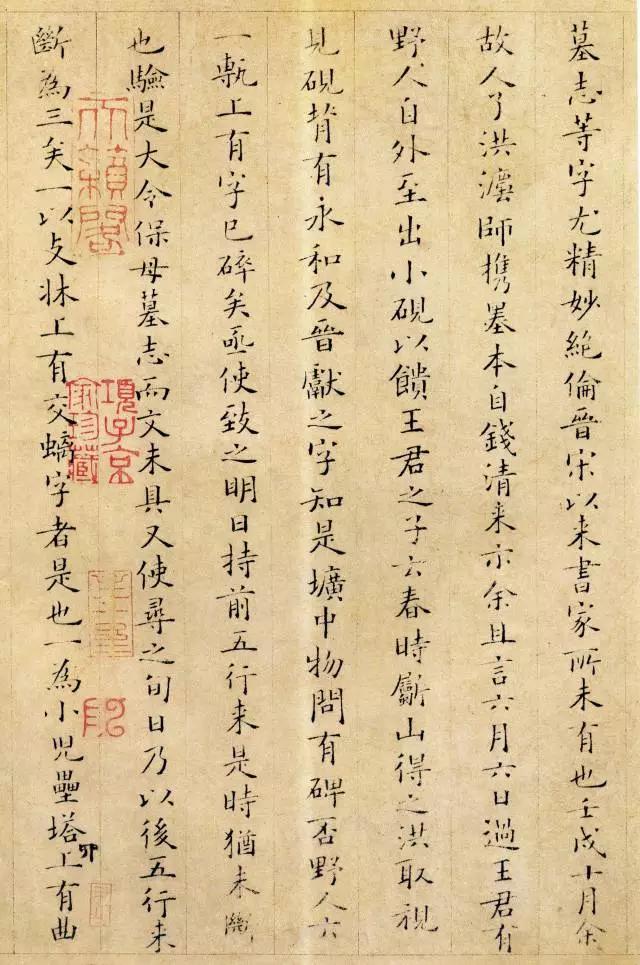 墓志等字尤精妙絶倫晉宋以来書家所未有也壬戌十月余
故人了洪澐師携墨本自錢清来示余且言六月六日過王君有
野人自外至出小硯以饋王君之子云春時斸山得之洪取視
見硯背有永和及晉獻之字知是壙中物問有碑否野人云
一甎上有字已碎矣亟使致之明日持前五行来是時猶未斷
也驗是大令保母墓志而文未具又使尋之旬日乃以後五行来
斷為三矣一以攴牀上有交螭字者是也一為小兒壘塔上有曲
天籟閣
項子京家珍藏